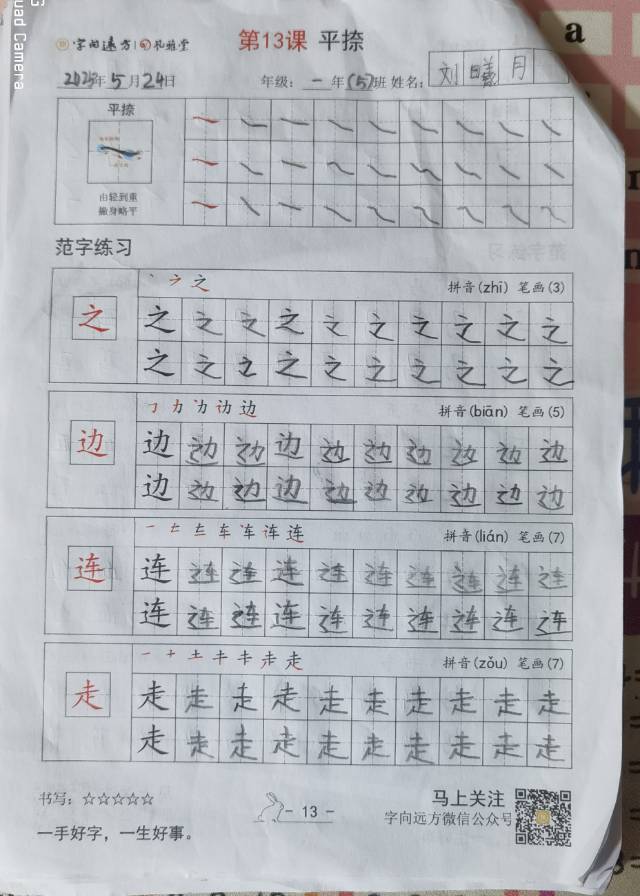 uad Camera
a
字向远方
第13课 平捺
2023年5月24日 年级:一年(5)班 姓名:刘曦月
平捺
由轻到重
撇身略平
范字练习
丶 ㇇ 之 拼音(zhī) 笔画(3)
之 之 之 之 之 之 之 之 之 之 之
之 之 之 之 之 之 之 之 之 之
㇆ 力 边 边 拼音(biān) 笔画(5)
边 边 边 边 边 边 边 边 边 边 边
边 边 边 边 边 边 边 边 边 边
一 车 连 连 拼音(lián) 笔画(7)
连 连 连 连 连 连 连 连 连 连 连
连 连 连 连 连 连 连 连 连 连
一 十 土 走 拼音(zǒu) 笔画(7)
走 走 走 走 走 走 走 走 走 走 走
走 走 走 走 走 走 走 走 走 走
书写:☆☆☆☆☆
一手好字,一生好事。
- 13 -
马上关注
字向远方微信公众号